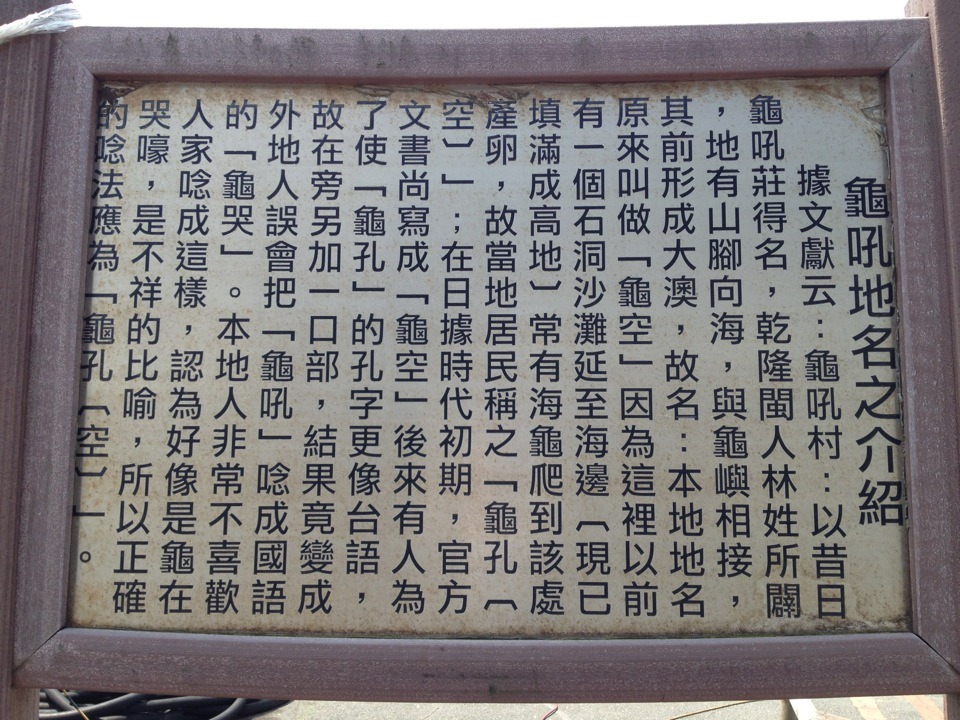 龜吼地名之介紹
據文獻云：龜吼村：以昔日
龜吼莊得名，乾隆閩人林姓所闢
，地有山腳向海，與龜嶼相接，
其前形成大澳，故名：本地地名
原來叫做「龜空」因為這裡以前
有一個石洞沙灘延至海邊〔現已
填滿成高地〕常有海龜爬到該處
產卵，故當地居民稱之「龜孔〔
空〕」；在日據時代初期，官方
文書尚寫成「龜空」後來有人為
了使「龜孔」的孔字更像台語，
故在旁另加一口部，結果竟變成
外地人誤會把「龜吼」唸成國語
的「龜哭」。本地人非常不喜歡
人家唸成這樣，認為好像是龜在
哭嚎，是不祥的比喻，所以正確
的唸法應為「龜孔〔空〕」。